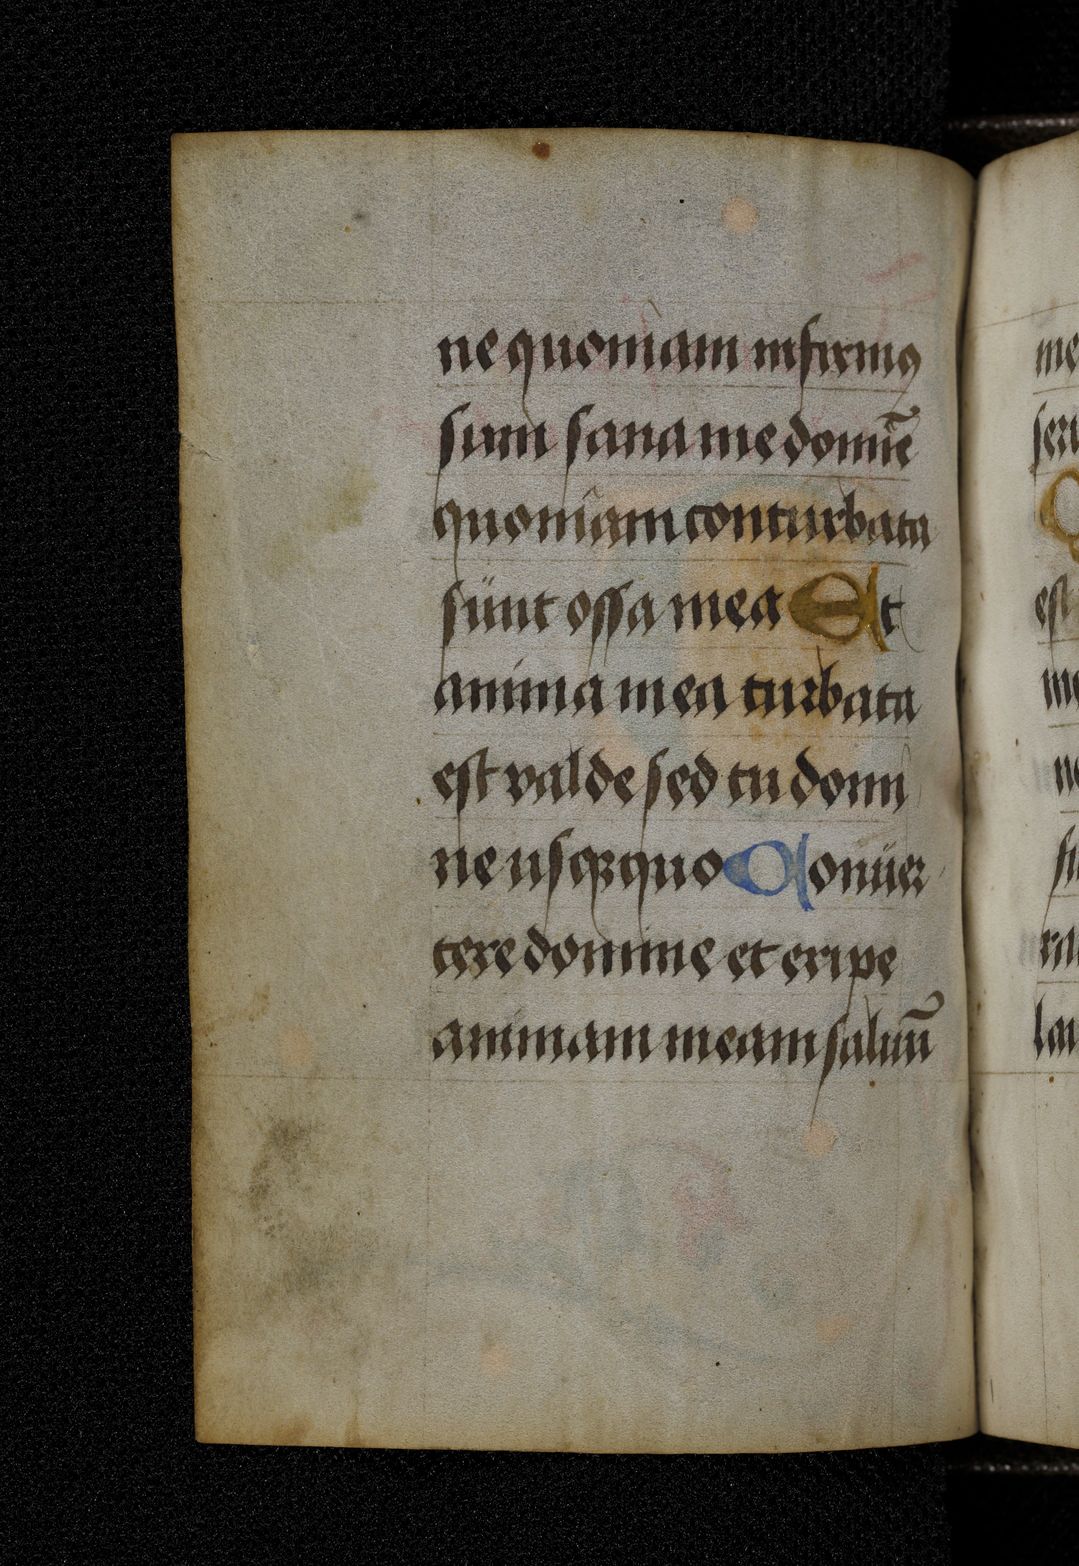 ne quoniam infirmꝯ
sum sana me domĩe
quoniam conturbata
sunt ossa mea Et
anima mea turbata
est valde sed tu domi
ne usqꝫquo Conuer
tere domine et eripe
animam meam saluũ
me
est